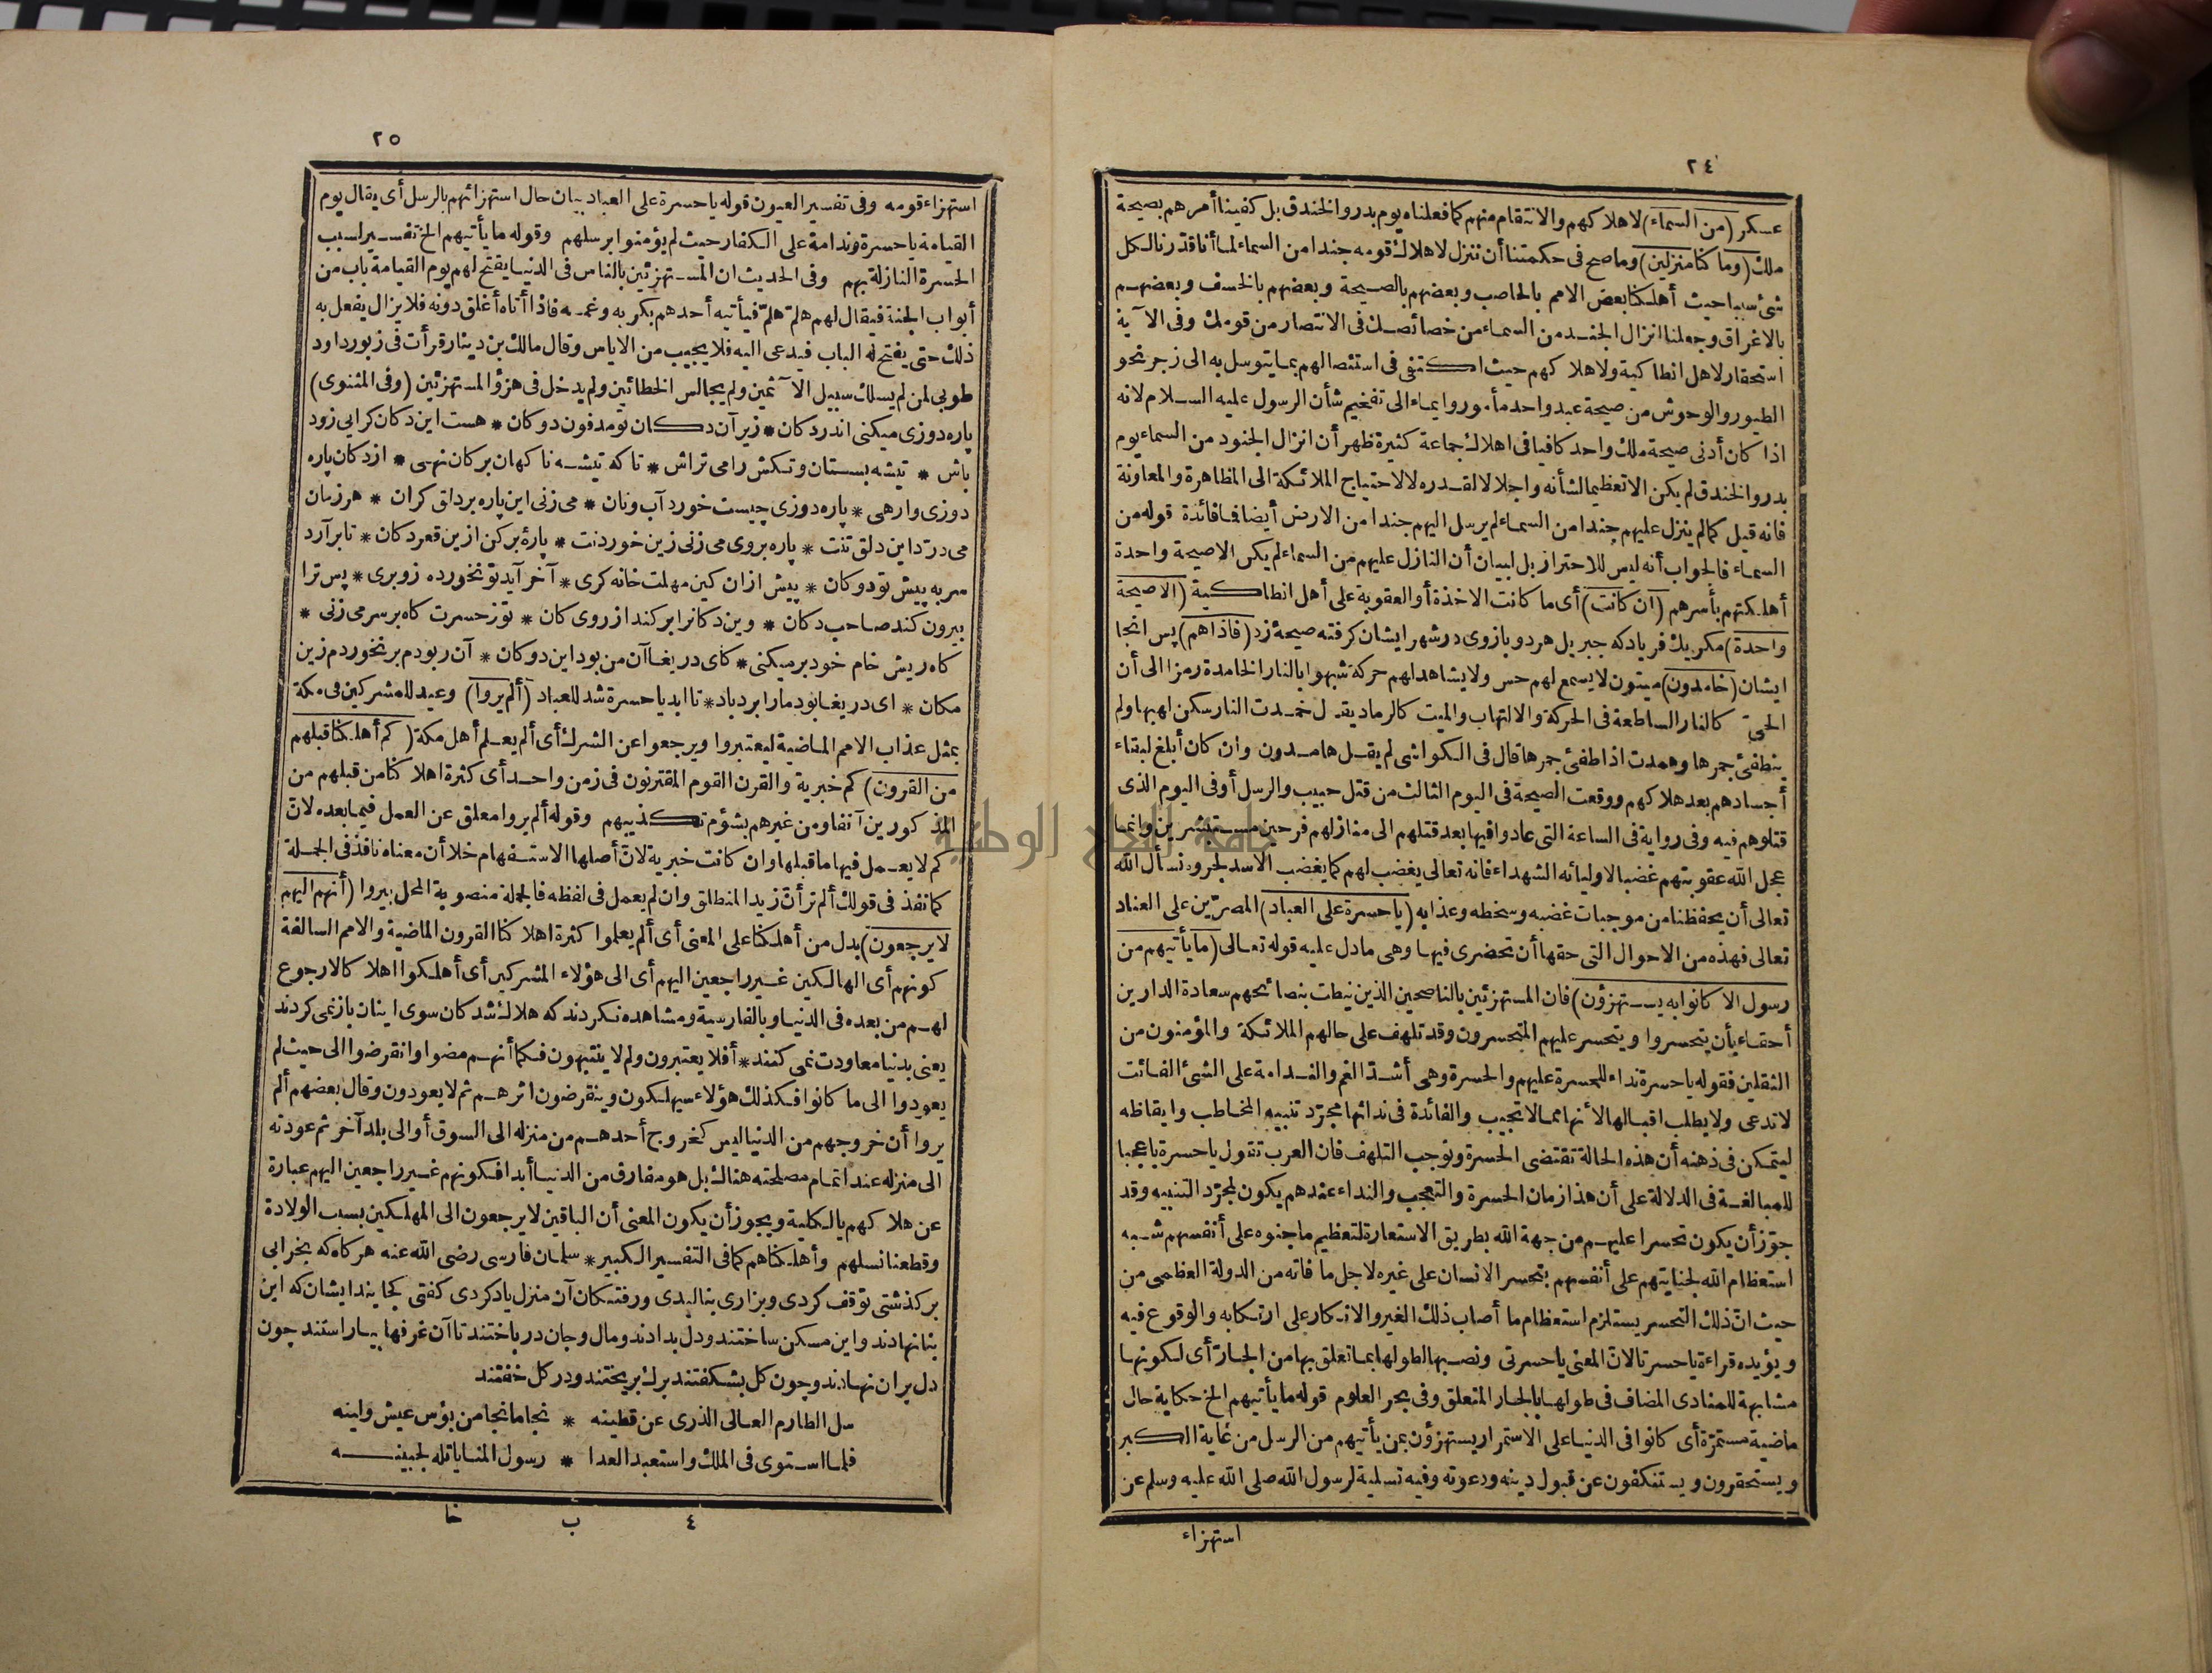 ٢٤
عسكر (من السماء) لاهلاكهم والانتقام منهم كمافعلناه يوم بدر والخندق بل كفينا أمرهم بصيحة
ملك (وما كنا منزلين) وماصح فى حكمتنا أن ننزل لاهلاك قومه جندا من السماء لما أنا قدرنا لكل
شئ سببا حيث أهلكنا بعض الامم بالحاصب وبعضهم بالصيحة وبعضهم بالخسف وبعضهم
بالاغراق وجعلنا انزال الجند من السماء من خصائصك فى الانتصار من قومك وفى الآية
استحقار لاهل انطاكية ولاهلاكهم حيث اكتفى فى استئصالهم بما يتوسل به الى زجر نحو
الطيور والوحوش من صيحة عبد واحد مأمور وايماء الى تفخيم شأن الرسول عليه السلام لانه
اذا كان أدنى صيحة ملك واحد كافيا فى اهلاك جماعة كثيرة ظهر أن انزال الجنود من السماء يوم
بدر والخندق لم يكن الا تعظيما لشأنه واجلالا لقدره لا لاحتياج الملائكة الى المظاهرة والمعاونة
فانه قيل كما لم ينزل عليهم جندا من السماء لم يرسل اليهم جندا من الارض أيضا فما فائدة قوله من
السماء فالجواب أنه ليس للاحتراز بل لبيان أن النازل عليهم من السماء لم يكن الا صيحة واحدة
أهلكتهم بأسرهم (ان كانت) أى ما كانت الاخذة أو العقوبة على أهل انطاكية (الا صيحة
واحدة) مكر يك فرياد كه جبريل هردو بازوى درشهر ايشان كرفته صيحهٔ زد (فاذا هم) پس انجا
ايشان (خامدون) ميتون لا يسمع لهم حس ولا يشاهد لهم حركة شبهوا بالنار الخامدة رمزا الى أن
الحىّ كالنار الساطعة فى الحركة والالتهاب والميت كالرماد يقال خمدت النار سكن لهبها ولم
ينطفئ جمرها وهمدت اذا طفئ جمرها قال فى الكواشى لم يقل هامدون وان كان أبلغ لبقاء
أجسادهم بعد هلاكهم ووقعت الصيحة فى اليوم الثالث من قتل حبيب والرسل أو فى اليوم الذى
قتلوهم فيه وفى رواية فى الساعة التى عادوا فيها بعد قتلهم الى منازلهم فرحين مستبشرين وانما
عجل الله عقوبتهم غضبا لاوليائه الشهداء فانه تعالى يغضب لهم كما يغضب الاسد لجروه نسأل الله
تعالى أن يحفظنا من موجبات غضبه وسخطه وعذابه (يا حسرة على العباد) المصرّين على العناد
تعالى فهذه من الاحوال التى حقها أن تحضرى فيها وهى مادل عليه قوله تعالى (ما يأتيهم من
رسول الا كانوا به يستهزؤن) فان المستهزئين بالناصحين الذين نيطت بنصائحهم سعادة الدارين
أحقاء بأن يتحسروا ويتحسر عليهم المتحسرون وقد تلهف على حالهم الملائكة والمؤمنون من
الثقلين فقوله يا حسرة نداء للحسرة عليهم والحسرة وهى أشدّ الغم والندامة على الشئ الفائت
لا تدعى ولا يطلب اقبالها لانها مما لا تجيب والفائدة فى ندائها مجرّد تنبيه المخاطب وايقاظه
ليتمكن فى ذهنه أن هذه الحالة تقتضى الحسرة وتوجب التلهف فان العرب تقول يا حسرة يا عجبا
للمبالغة فى الدلالة على أن هذا زمان الحسرة والتعجب والنداء عندهم يكون لمجرّد التنبيه وقد
جوّز أن يكون تحسرا عليهم من جهة الله بطريق الاستعارة لتعظيم ما جنوه على أنفسهم شبه
استعظام الله لجنايتهم على أنفسهم بتحسر الانسان على غيره لاجل ما فاته من الدولة العظمى من
حيث انّ ذلك التحسر يستلزم استعظام ما أصاب ذلك الغير والانكار على ارتكابه والوقوع فيه
ويؤيده قراءة يا حسرتا لانّ المعنى يا حسرتى ونصبها لطولها بما تعلق بها من الجارّ أى لكونها
مشابهة للمنادى المضاف فى طولها بالجار المتعلق وفى بحر العلوم قوله ما يأتيهم الخ حكاية حال
ماضية مستمرّة أى كانوا فى الدنيا على الاستمرار يستهزؤن بمن يأتيهم من الرسل من غاية الكبر
ويستحقرون ويستنكفون عن قبول دينه ودعوته وفيه تسلية لرسول الله صلى الله عليه وسلم عن
استهزاء
٢٥
استهزاء قومه وفى تفسير العيون قوله يا حسرة على العباد بيان حال استهزائهم بالرسل أى يقال يوم
القيامة يا حسرة وندامة على الكفار حيث لم يؤمنوا برسلهم وقوله ما يأتيهم الخ تفسير لسبب
الحسرة النازلة بهم وفى الحديث ان المستهزئين بالناس فى الدنيا يفتح لهم يوم القيامة باب من
أبواب الجنة فيقال لهم هلمّ هلمّ فيأتيه أحدهم بكربه وغمه فاذا أتاه أغلق دونه فلا يزال يفعل به
ذلك حتى يفتح له الباب فيدعى اليه فلا يجيب من الاياس وقال مالك بن دينار قرأت فى زبور داود
طوبى لمن لم يسلك سبيل الآثمين ولم يجالس الخطائين ولم يدخل فى هزؤ المستهزئين (وفى المثنوى)
پاره دوزى ميكنى اندر دكان * زير آن دكان تو مدفون دو كان * هست اين دكان كرايى زود
باش * تيشه بستان وتكش را مى تراش * تا كه تيشه ناكهان بر كان نهى * از دكان پاره
دوزى وارهى * پاره دوزى چيست خورد آب ونان * مى زنى اين پاره بر دلق كران * هر زمان
مى درّد اين دلق تنت * پاره بر وى مى زنى زين خوردنت * پارهٔ بر كن ازين قعر دكان * تا بر آرد
سر به پيش تو دو كان * پيش ازان كين مهلت خانه كرى * آخر آيد تو نخورده زو برى * پس ترا
بيرون كند صاحب دكان * وين دكانرا بر كند از روى كان * تو ز حسرت كاه بر سر مى زنى *
كاه ريش خام خود بر ميكنى * كاى دريغا آن من بود اين دو كان * آن ربودم بر نخوردم زين
مكان * اى دريغا بود ما را برد باد * تا ابد يا حسرة شد للعباد (ألم يروا) وعيد للمشركين فى مكة
بمثل عذاب الامم الماضية ليعتبروا ويرجعوا عن الشرك أى ألم يعلم أهل مكة (كم أهلكنا قبلهم
من القرون) كم خبرية والقرن القوم المقترنون فى زمن واحد أى كثرة اهلاكنا من قبلهم من
المذكورين آنفا ومن غيرهم بشؤم تكذيبهم وقوله ألم يروا معلق عن العمل فيما بعده لانّ
كم لا يعمل فيها ما قبلها وان كانت خبرية لانّ أصلها الاستفهام خلا أن معناه نافذ فى الجملة
كما نفذ فى قولك ألم تر أنّ زيدا لمنطلق وان لم يعمل فى لفظه فالجملة منصوبة المحل بيروا (أنهم اليهم
لا يرجعون) بدل من أهلكنا على المعنى أى ألم يعلموا كثرة اهلاكنا القرون الماضية والامم السالفة
كونهم أى الهالكين غير راجعين اليهم أى الى هؤلاء المشركين أى أهلكوا اهلاكا لا رجوع
لهم من بعده فى الدنيا وبالفارسية ومشاهده نكردند كه هلاك شدكان سوى اينان باز نمى كردند
يعنى بدنيا معاودت نمى كنند * أفلا يعتبرون ولم لا ينتبهون فكما أنهم مضوا وانقرضوا الى حيث لم
يعودوا الى ما كانوا فكذلك هؤلاء سيهلكون وينقرضون اثرهم ثم لا يعودون وقال بعضهم ألم
يروا أن خروجهم من الدنيا ليس كخروج أحدهم من منزله الى السوق أو الى بلد آخر ثم عودته
الى منزله عند اتمام مصلحته هناك بل هو مفارق من الدنيا أبدا فكونهم غير راجعين اليهم عبارة
عن هلاكهم بالكلية ويجوز أن يكون المعنى أن الباقين لا يرجعون الى المهلكين بسبب الولادة
وقطعنا نسلهم وأهلكناهم كما فى التفسير الكبير * سلمان فارسى رضى الله عنه هركاه كه بخرابى
بر كذشتى توقف كردى وبزارى بناليدى ورفتكان آن منزل ياد كردى كفتى كجايند ايشان كه اين
بنا نهادند واين مسكن ساختند ودل بدادند ومال وجان درباختند تا آن غرفها بياراستند چون
دل بران نهادند وچون كل بشكفتند برك بريختند ودر كل خفتند
سل الطارم العالى الذرى عن قطينه * نجا ما نجا من بؤس عيش ولينه
فلما استوى فى الملك واستعبد العدا * رسول المنايا تله لجبينه
٤ ب خا
جامعة النجاح الوطنية